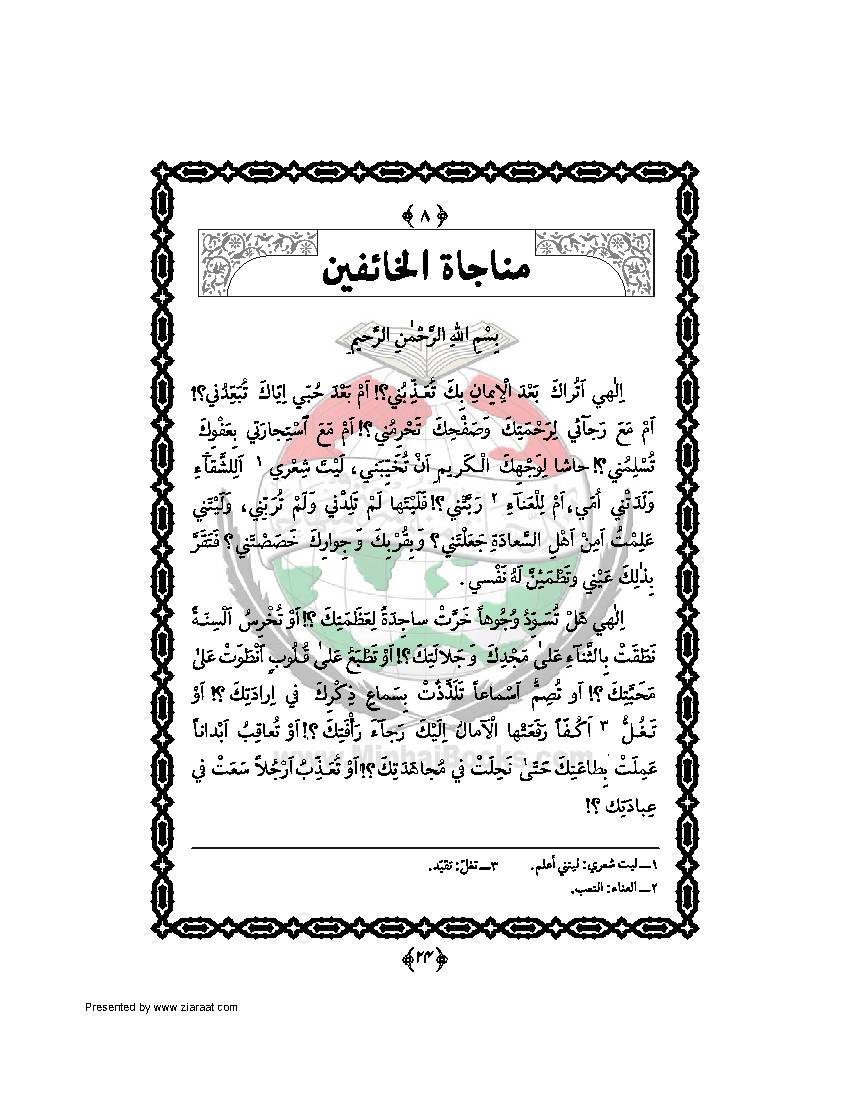 ﴿ ٨ ﴾
مناجاة الخائفين
بِسْمِ اللهِ الرَّحْمٰنِ الرَّحيمِ
اِلٰهي اَتُراكَ بَعْدَ الْاِيمانِ بِكَ تُعَذِّبُني؟! اَمْ بَعْدَ حُبّي اِيّاكَ تُبَعِّدُني؟!
اَمْ مَعَ رَجآئي لِرَحْمَتِكَ وَصَفْحِكَ تَحْرِمُني؟! اَمْ مَعَ ٱسْتِجارَتي بِعَفْوِكَ
تُسْلِمُني؟! حاشا لِوَجْهِكَ الْكَريمِ اَنْ تُخَيِّبَني، لَيْتَ شِعْري ١ اَلِلشَّقآءِ
وَلَدَتْني اُمّي، اَمْ لِلْعَنآءِ ٢ رَبَّتْني؟! فَلَيْتَها لَمْ تَلِدْني وَلَمْ تُرَبِّني، وَلَيْتَني
عَلِمْتُ اَمِنْ اَهْلِ السَّعادَةِ جَعَلْتَني؟ وَبِقُرْبِكَ وَجِوارِكَ خَصَصْتَني؟ فَتَقَرَّ
بِذٰلِكَ عَيْني وَتَطْمَئِنَّ لَهُ نَفْسي .
اِلٰهي هَلْ تُسَوِّدُ وُجُوهاً خَرَّتْ ساجِدَةً لِعَظَمَتِكَ ؟! اَوْ تُخْرِسُ اَلْسِنَةً
نَطَقَتْ بِالثَّنآءِ عَلىٰ مَجْدِكَ وَجَلالَتِكَ؟! اَوْ تَطْبَعُ عَلىٰ قُلُوبٍ ٱنْطَوَتْ عَلىٰ
مَحَبَّتِكَ ؟! اَو تُصِمُّ اَسْماعاً تَلَذَّذَتْ بِسَماعِ ذِكْرِكَ في اِرادَتِكَ ؟! اَوْ
تَغُلُّ ٣ اَكُفّاً رَفَعَتْها الْاٰمالُ اِلَيْكَ رَجآءَ رَأْفَتِكَ ؟! اَوْ تُعاقِبُ اَبْداناً
عَمِلَتْ بِطاعَتِكَ حَتّىٰ نَحِلَتْ في مُجاهَدَتِكَ؟! اَوْ تُعَذِّبُ اَرْجُلاً سَعَتْ في
عِبادَتِكَ ؟!
www.MinhajBooks.com
١ــ ليت شعري: ليتني أعلم. ٣ــ تغلّ: تقيّد.
٢ــ العناء: التعب.
﴿٢۴﴾
Presented by www.ziaraat.com